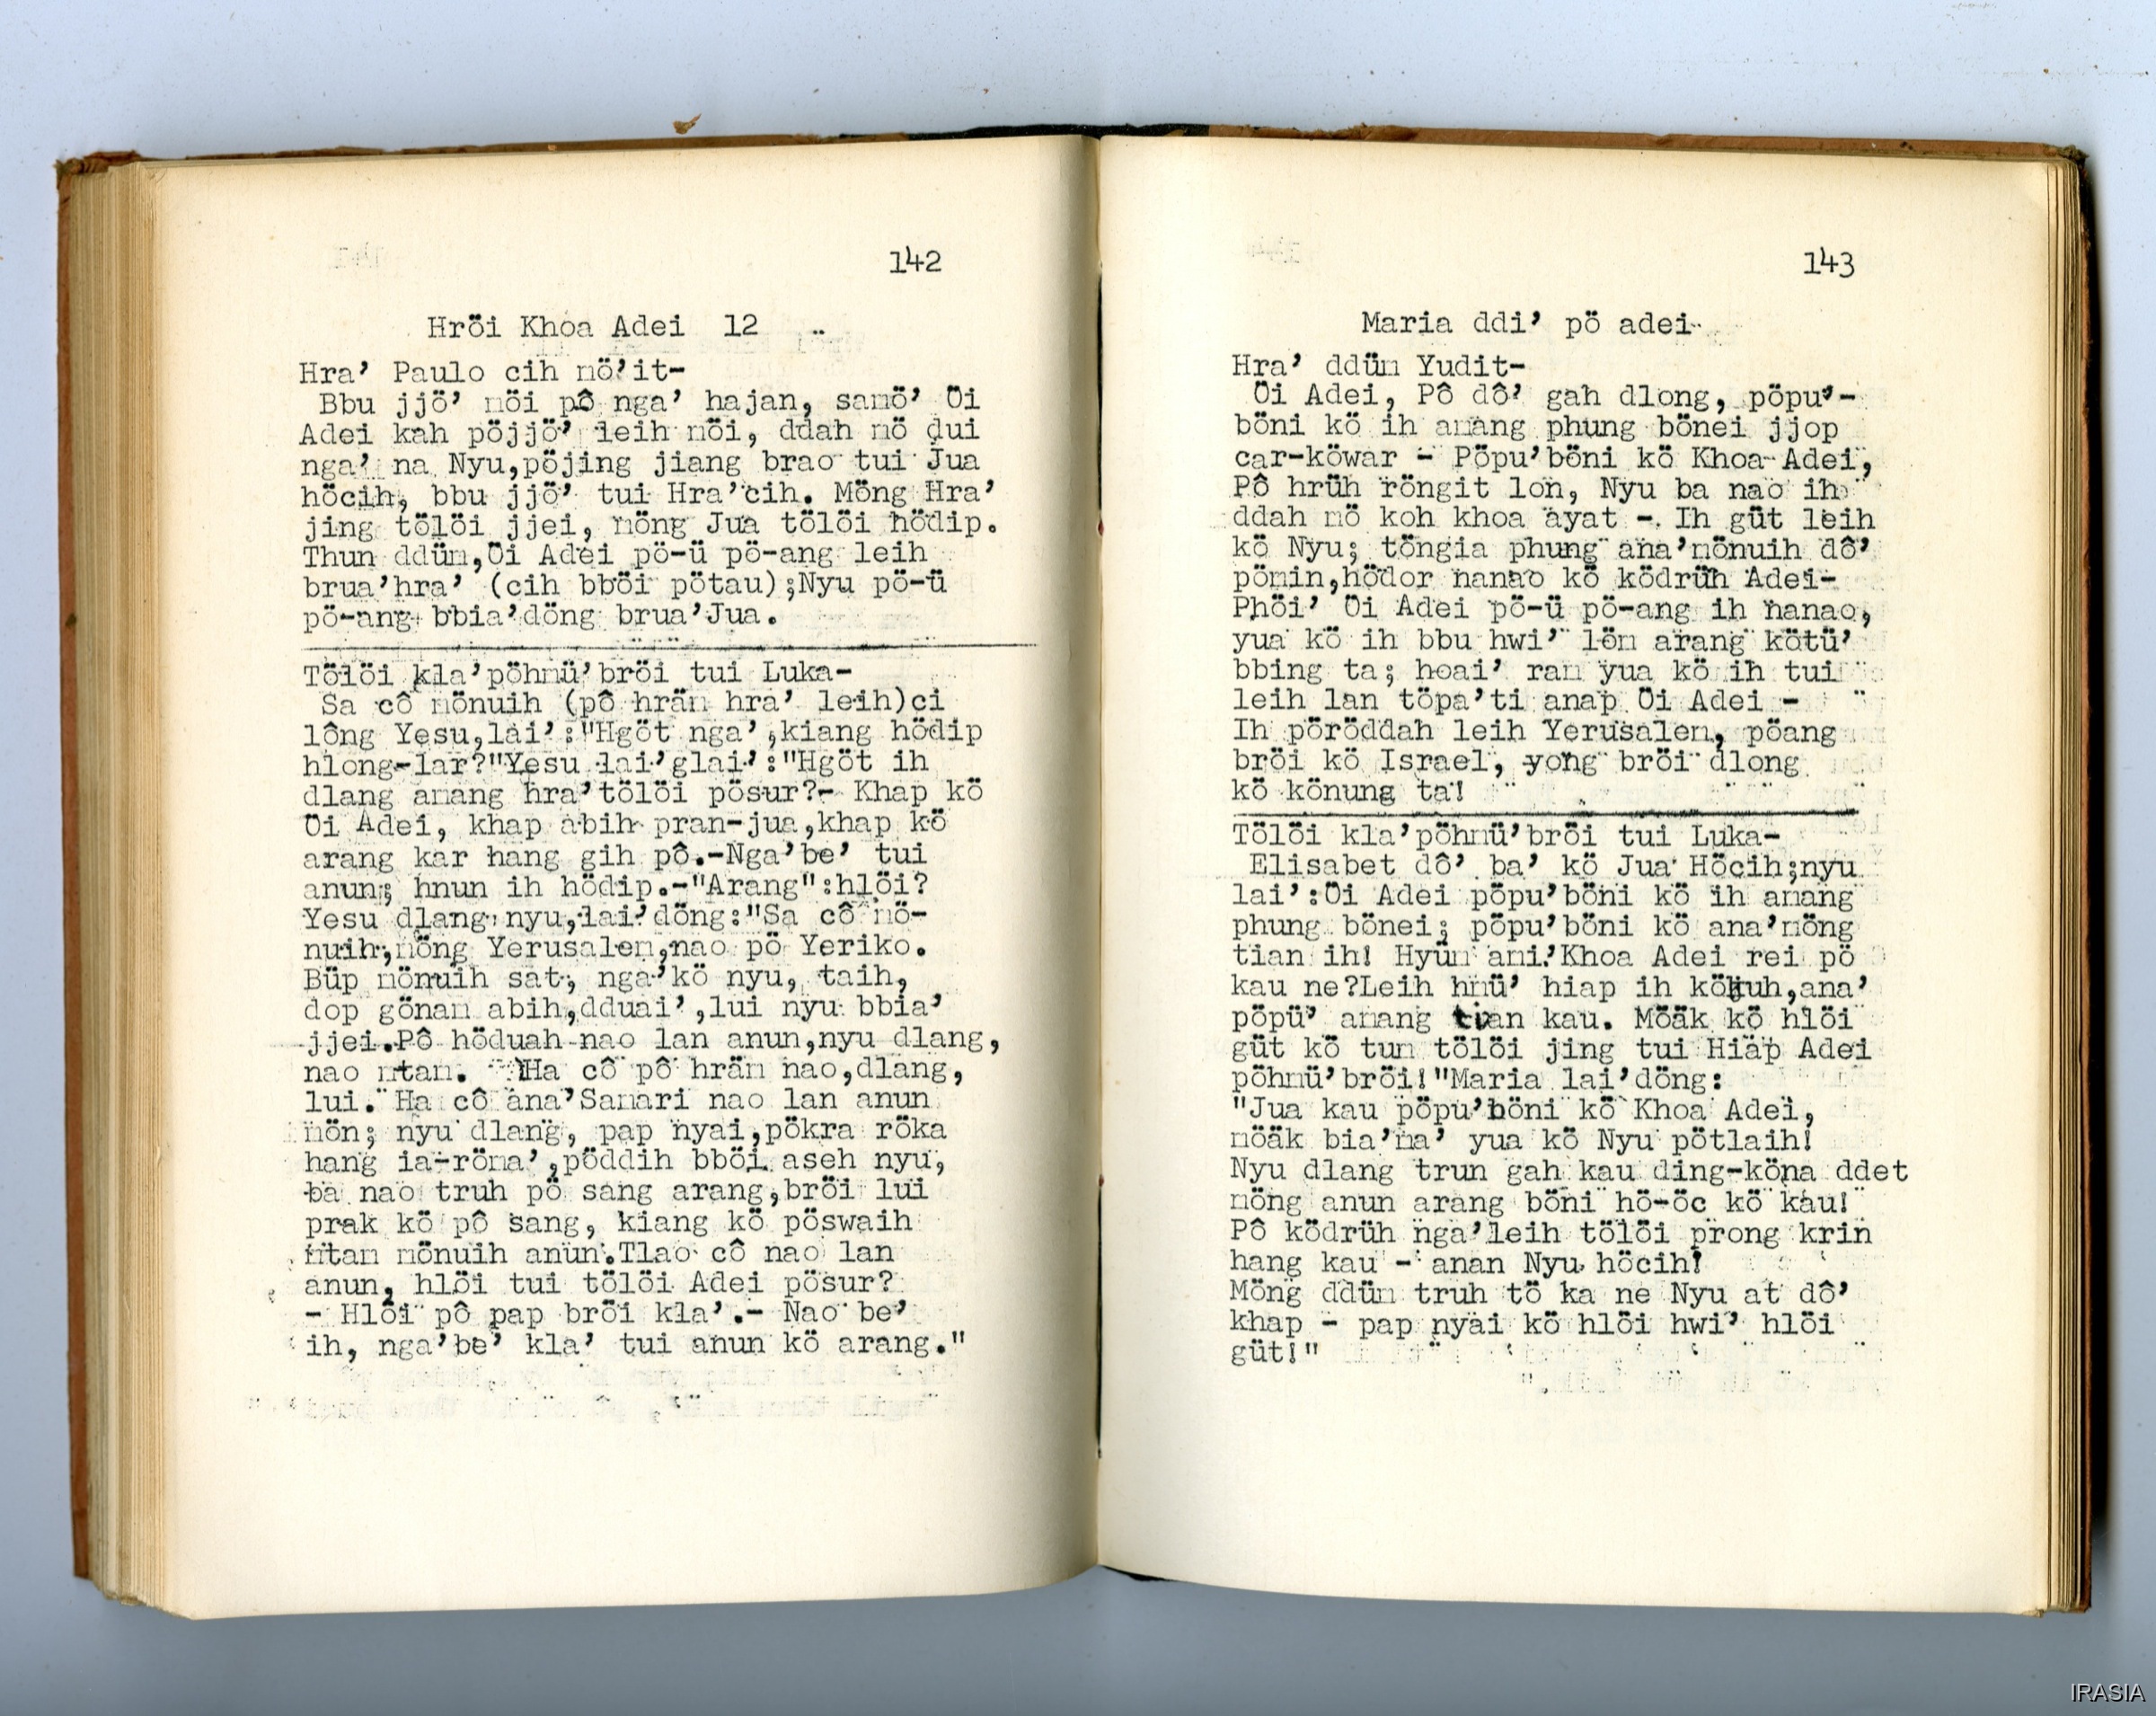 142
Hröi Khoa Adei 12
Hra’ Paulo cih mö’it-
Bbu jjö’ möi pô nga’ hajan, samö’ Öi
Adei kah pöjjö’ leih möi, ddah mö dui
nga’ na Nyu,pöjing jiang brao tui Jua
höcih, bbu jjö’ tui Hra’cih. Möng Hra’
jing tölöi jjei, möng Jua tölöi hödip.
Thun ddüm,Öi Adei pö-ü pö-ang leih
brua’hra’ (cih bböi pötau);Nyu pö-ü
pö-ang bbia’döng brua’Jua.
Tölöi kla’pöhmü’bröi tui Luka-
Sa cô mönuih (pô hräm hra’ leih)ci
lông Yesu,lai’:"Hgöt nga’,kiang hödip
hlong-lar?"Yesu lai’glai’:"Hgöt ih
dlang amang hra’tölöi pösur?- Khap kö
Öi Adei, khap abih pran-jua,khap kö
arang kar hang gih pô.-Nga’be’ tui
anun; hnun ih hödip.-"Arang":hlöi?
Yesu dlang nyu,lai’döng:"Sa cô mö-
nuih,möng Yerusalem,nao pö Yeriko.
Büp mönuih sat, nga’kö nyu, taih,
dop gönam abih,dduai’,lui nyu bbia’
jjei.Pô höduah nao lan anun,nyu dlang,
nao mtam. Ha cô pô hräm nao,dlang,
lui. Ha cô ana’Samari nao lan anun
mön; nyu dlang, pap nyai,pökra röka
hang ia-röma’,pöddih bböi aseh nyu,
ba nao truh pö sang arang,bröi lui
prak kö pô sang, kiang kö pöswaih
mtam mönuih anun.Tlao cô nao lan
anun, hlöi tui tölöi Adei pösur?
- Hlöi pô pap bröi kla’.- Nao be’
ih, nga’be’ kla’ tui anun kö arang."
143
Maria ddi’ pö adei
Hra’ ddüm Yudit-
Öi Adei, Pô dô’ gah dlong, pöpu’-
böni kö ih amang phung bönei jjop
car-köwar - Pöpu’böni kö Khoa Adei,
Pô hrüh röngit lon, Nyu ba nao ih
ddah mö koh khoa ayat -. Ih güt leih
kö Nyu; töngia phung ana’mönuih dô’
pömin,hödor nanao kö ködrüh Adei-
Phöi’ Öi Adei pö-ü pö-ang ih nanao,
yua kö ih bbu hwi’ löm arang kötü’
bbing ta; hoai’ ram yua kö ih tui
leih lan töpa’ti anap Öi Adei -
Ih pöröddah leih Yerusalem, pöang
bröi kö Israel, yong bröi dlong
kö könung ta!
Tölöi kla’pöhmü’bröi tui Luka-
Elisabet dô’ ba’ kö Jua Höcih;nyu
lai’:Öi Adei pöpu’böni kö ih amang
phung bönei; pöpu’böni kö ana’möng
tian ih! Hyüm ami’Khoa Adei rei pö
kau ne?Leih hmü’ hiap ih kökuh,ana’
pöpü’ amang tian kau. Möäk kö hlöi
güt kö tum tölöi jing tui Hiäp Adei
pöhmü’bröi!"Maria lai’döng:
"Jua kau pöpu’böni kö Khoa Adei,
möäk bia’ma’ yua kö Nyu pötlaih!
Nyu dlang trun gah kau ding-köna ddet
möng anun arang böni hö-öc kö kau!
Pô ködrüh nga’leih tölöi prong krin
hang kau - anan Nyu höcih!
Möng ddüm truh tö ka ne Nyu at dô’
khap - pap nyai kö hlöi hwi’ hlöi
güt!"
IRASIA